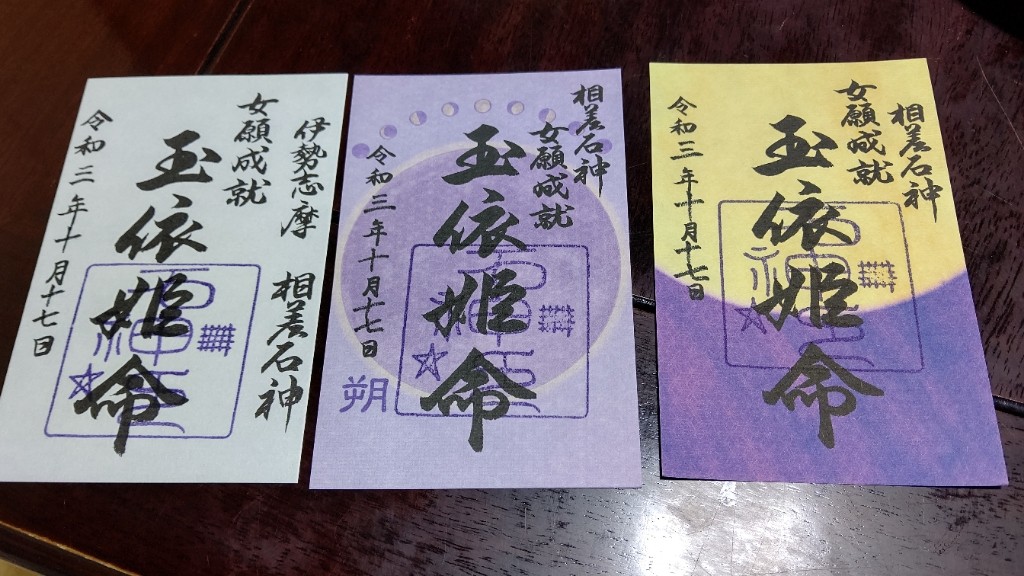 伊勢志摩 相差石神
女願成就
玉依姫命
令和三年十月十七日
相差石神
女願成就
玉依姫命
令和三年十月十七日
朔
相差石神
女願成就
玉依姫命
令和三年十月十七日